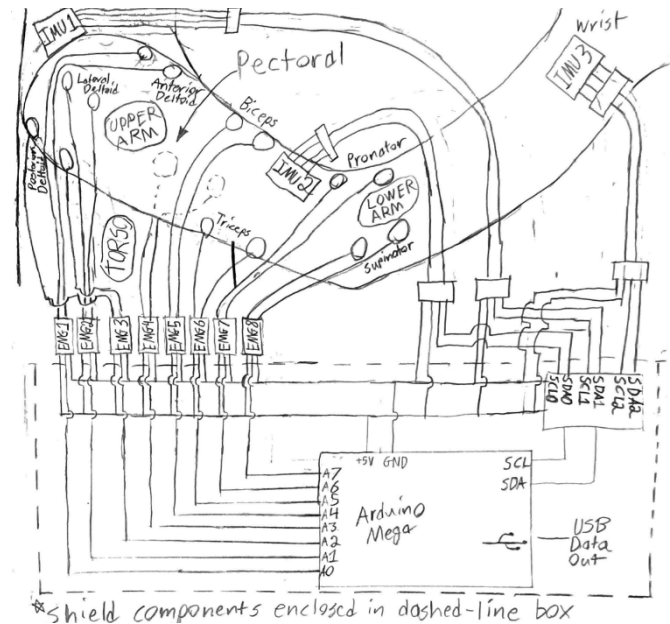 IMU1
Wrist
IMU3
Pectoral
Lateral
Deltoid
Anterior
Deltoid
Biceps
UPPER
ARM
Posterior
Deltoid
IMU2
Pronator
LOWER
ARM
Triceps
Supinator
TORSO
EMG1
EMG2
EMG3
EMG4
EMG5
EMG6
EMG7
EMG8
SCL0
SDA0
SCL1
SDA1
SCL2
SDA2
+5V GND
SCL
SDA
A7
A6
A5
A4
A3
A2
A1
A0
Arduino
Mega
USB
Data
Out
*Shield components enclosed in dashed-line box